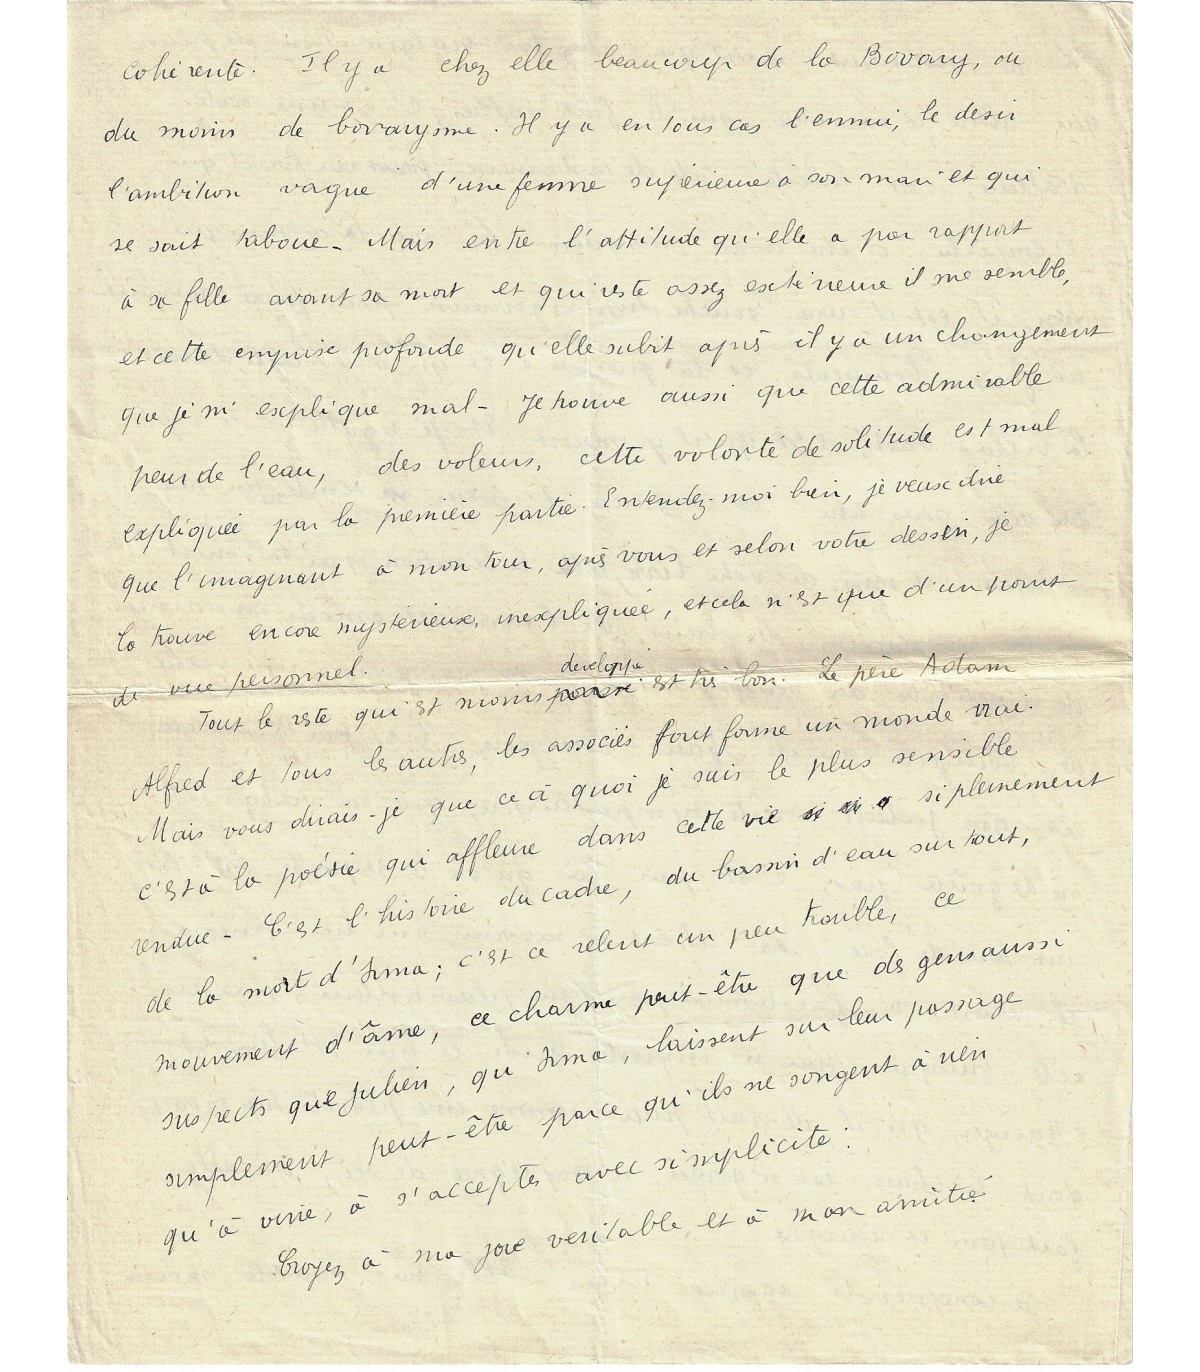 cohérente. Il y a chez elle beaucoup de la Bovary, ou
du moins de bovarysme. Il y a en tous cas l'ennui, le desir
l'ambition vague d'une femme supérieure à son mari et qui
se sait taboue - Mais entre l'attitude qu'elle a par rapport
à sa fille avant sa mort et qui reste assez extérieure il me semble,
et cette emprise profonde qu'elle subit après il y a un changement
que je m'explique mal - Je trouve aussi que cette admirable
peur de l'eau, des voleurs, cette volonté de solitude est mal
expliquée par la première partie. Entendez-moi bien, je veux dire
que l'imaginant à mon tour, après vous et selon votre dessein, je
la trouve encore mystérieuse, inexpliquée, et cela n'est que d'un point
de vue personnel.
developpé
Tout le reste qui est moins est très bon. Le père Adam
Alfred et tous les autres, les associés font forme un monde vrai.
Mais vous dirais-je que ce à quoi je suis le plus sensible
c'est à la poésie qui affleure dans cette vie si pleinement
rendue - C'est l'histoire du cadre, du bassin d'eau surtout,
de la mort d'Irma; c'est ce relent un peu trouble, ce
mouvement d'âme, ce charme peut-être que des gens aussi
suspects que Julien, qu'Irma, laissent sur leur passage
simplement peut-être parce qu'ils ne songent à rien
qu'à vivre, à s'accepter avec simplicité.
Croyez à ma joie veritable et à mon amitié